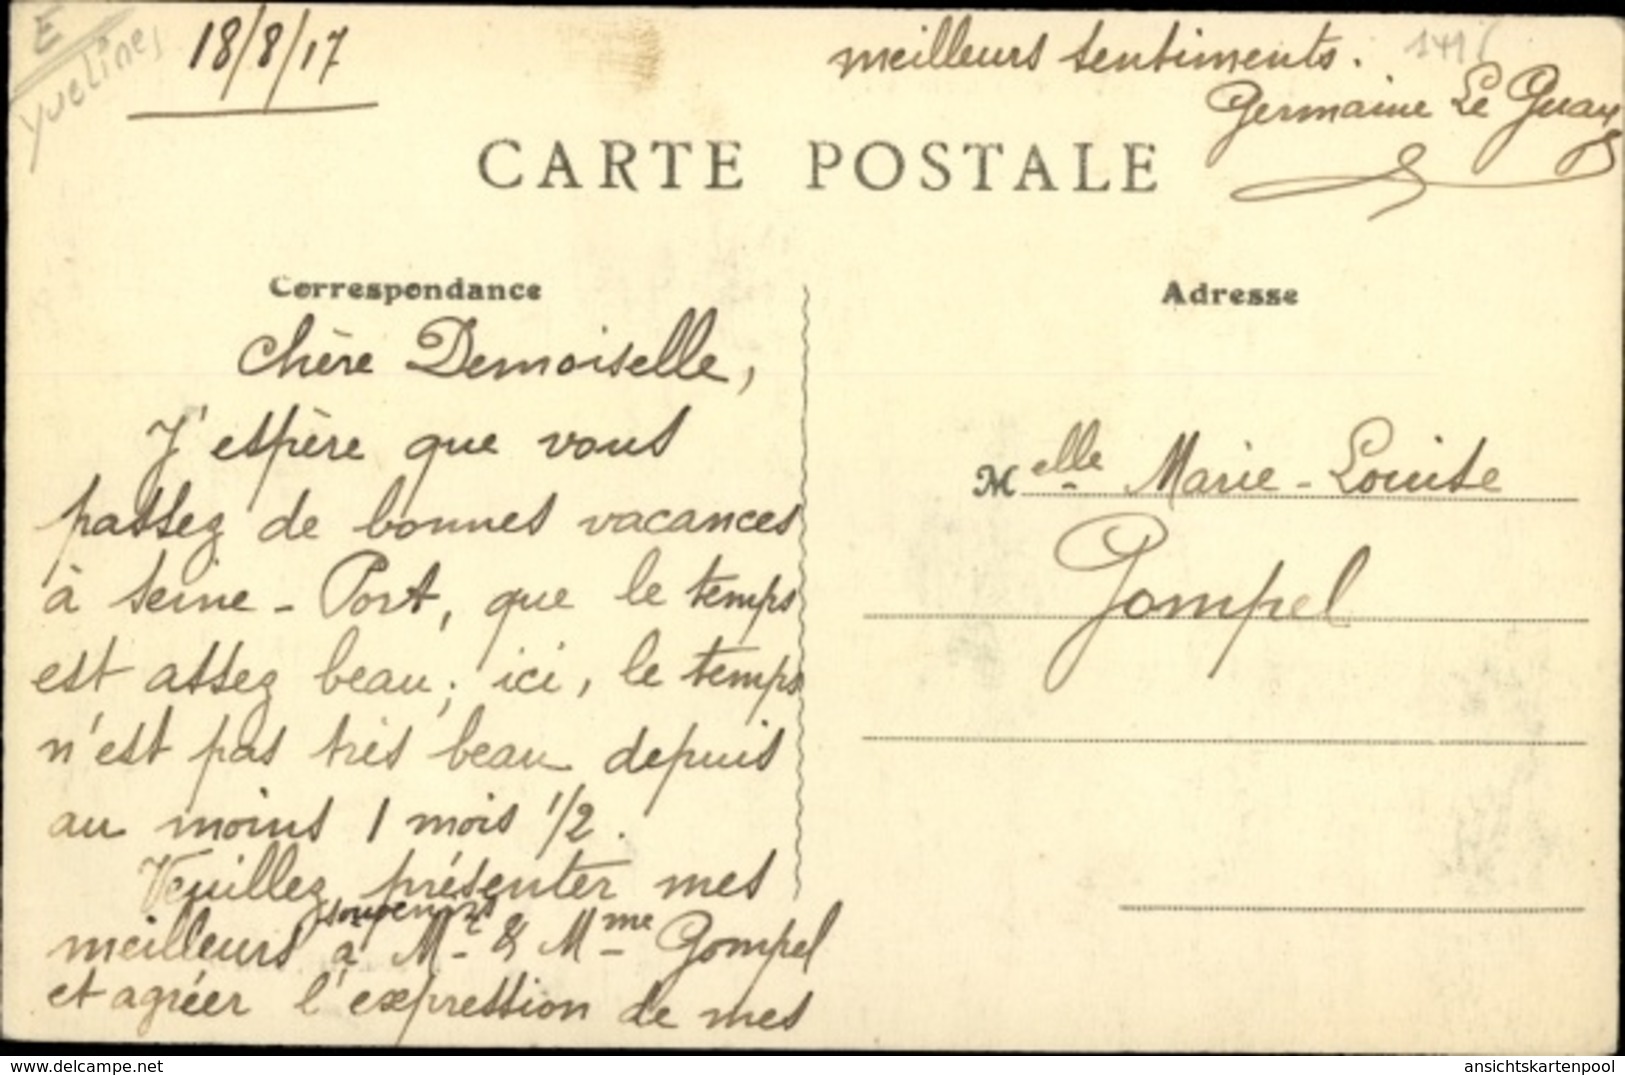 E
Yvelines
18/8/17
CARTE POSTALE
Correspondance
Chère Demoiselle,
J'espère que vous
passez de bonnes vacances
à Seine-Port, que le temps
est assez beau; ici, le temps
n'est pas très beau depuis
au moins 1 mois 1/2.
Veuillez présenter mes
souvenirs
meilleurs à Mr & Mme Gompel
et agréer l'expression de mes
meilleurs sentiments.
Germaine Le Guay
Adresse
Melle Marie-Louise
Gompel
www.delcampe.net
ansichtskartenpool